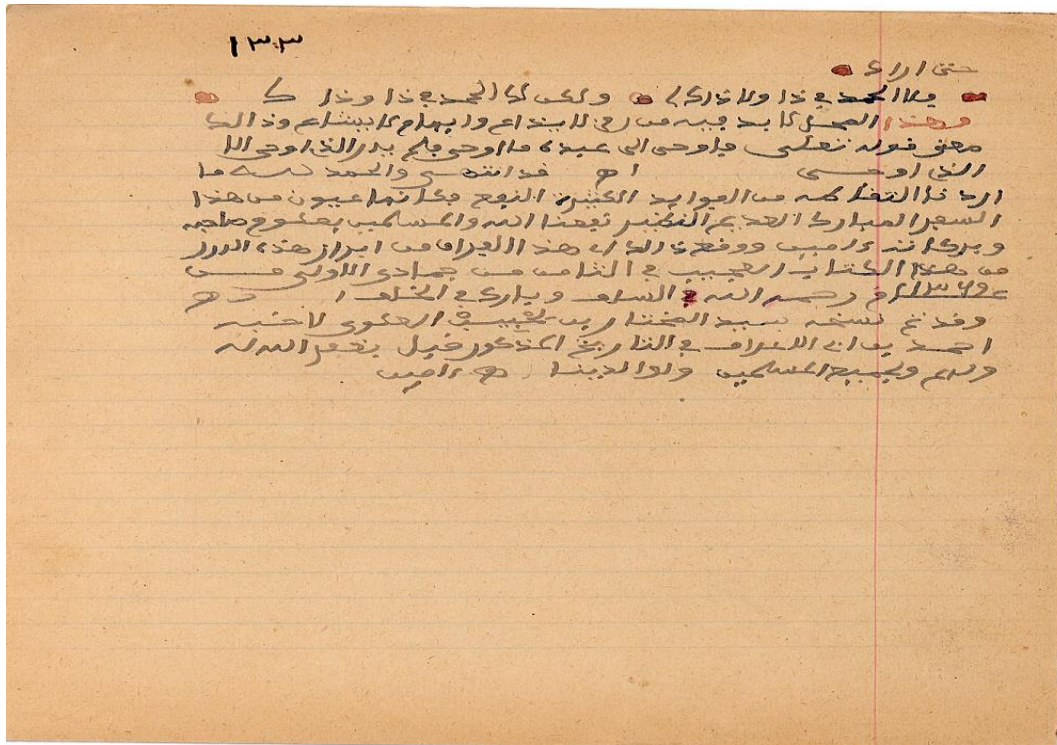 ١٣٣
حتى اراك
فلا الحمد في ذا ولا ذاك لي ولكن لك الحمد في ذا وذا ك
وهذا المحل لا بد فيه من رمز لا يذاع وابهام لا يشاع وذالك
معنى قوله تعلى فاوحى الى عبده ما اوحى فلم يدر الذي اوحى الا
الذي اوحى اه قد انتهى والحمد لله ما
اردنا التقاطه من الفوايد الكثيرة النفع فكانها عيون من هذا
السفر المبارك العديم النظير نفعنا الله والمسلمين بعلوم صاحبه
وبركاته ءامين ووقع ذالك اي هذا الفراغ من ابراز هذه الدرر
من هذا الكتاب العجيب في الثامن من جمادى الاولى من
رحمه الله في السلف وبارك في الخلف ا ه
وقد تم نسخه بيد المختار بن لحبيب العلوي لاخيه
احمد بن ابي الاعراف في التاريخ المذكور قبل يغفر الله له
ولهم ولجميع المسلمين ولوالدينا ه ءامين